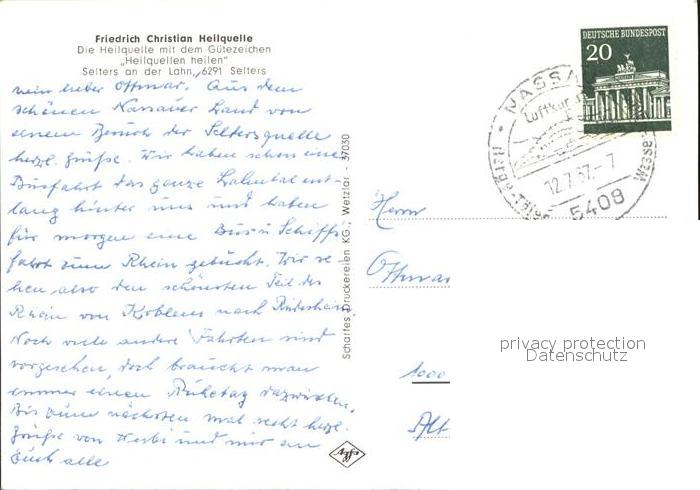 Friedrich Christian Heilquelle
Die Heilquelle mit dem Gütezeichen
„Heilquellen heilen"
Selters an der Lahn, 6291 Selters
mein lieber Ottmar. Aus dem
schönen Nassauer Land von
einem Besuch der Seltersquelle
herzl. Grüße. Wir haben schon eine
Busfahrt das ganze Lahntal ent-
lang hinter uns und haben
für morgen eine Bus u Schiffs-
fahrt zum Rhein gebucht. Wir se-
hen also den schönsten Teil des
Rhein von Koblenz nach Rüdesheim.
Noch viele andere Fahrten sind
vorgesehen, doch braucht man
immer einen Ruhetag dazwischen.
Bis zum nächsten mal recht herzl.
Grüße von und mir an
Euch alle
Scharfes Druckereien KG., Wetzlar - 37030
Agfa
DEUTSCHE BUNDESPOST
20
NASSA
Luftkur
12.7.67.-7
5408
Herrn
Ottmar
1000
privacy protection
Datenschutz